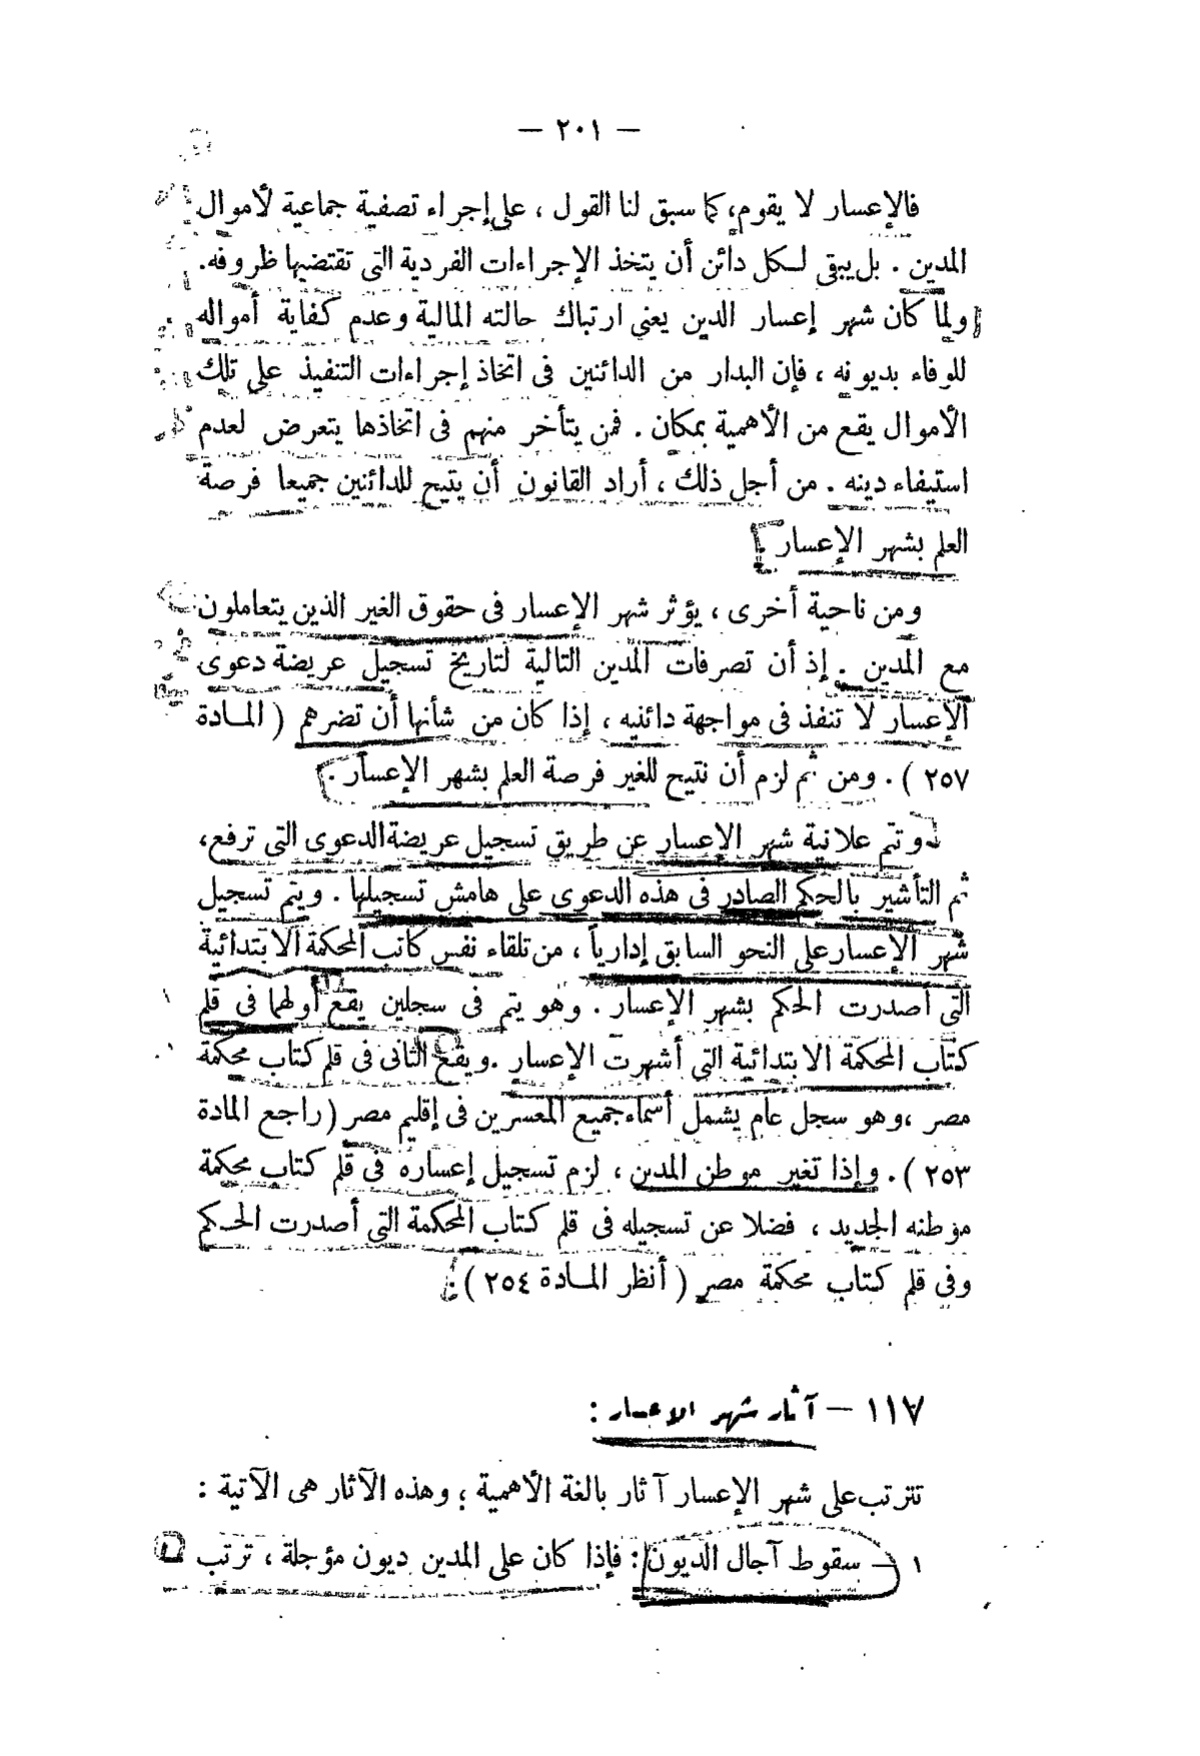 — ٢٠١ —
فالإعسار لا يقوم، كما سبق لنا القول ، على إجراء تصفية جماعية لأموال
المدين . بل يبقى لكل دائن أن يتخذ الإجراءات الفردية التى تقتضيها ظروفه.
ولما كان شهر إعسار الدين يعني ارتباك حالته المالية وعدم كفاية أمواله
للوفاء بديونه ، فإن البدار من الدائنين فى اتخاذ إجراءات التنفيذ على تلك
الأموال يقع من الأهمية بمكان . فمن يتأخر منهم فى اتخاذها يتعرض لعدم
استيفاء دينه . من أجل ذلك ، أراد القانون أن يتيح للدائنين جميعا فرصة
العلم بشهر الإعسار .
ومن ناحية أخرى ، يؤثر شهر الإعسار فى حقوق الغير الذين يتعاملون
مع المدين . إذ أن تصرفات المدين التالية لتاريخ تسجيل عريضة دعوى
الإعسار لا تنفذ فى مواجهة دائنيه ، إذا كان من شأنها أن تضرهم ( المادة
٢٥٧ ) . ومن ثم لزم أن نتيح للغير فرصة العلم بشهر الإعسار .
وتتم علانية شهر الإعسار عن طريق تسجيل عريضة الدعوى التى ترفع،
ثم التأشير بالحكم الصادر فى هذه الدعوى على هامش تسجيلها . ويتم تسجيل
شهر الإعسار على النحو السابق إدارياً ، من تلقاء نفس كاتب المحكمة الابتدائية
التى أصدرت الحكم بشهر الإعسار . وهو يتم فى سجلين يقع أولهما فى قلم
كتاب المحكمة الابتدائية التى أشهرت الإعسار . ويقع الثانى فى قلم كتاب محكمة
مصر ، وهو سجل عام يشمل أسماء جميع المعسرين فى إقليم مصر ( راجع المادة
٢٥٣ ) . وإذا تغير موطن المدين ، لزم تسجيل إعساره فى قلم كتاب محكمة
موطنه الجديد ، فضلا عن تسجيله فى قلم كتاب المحكمة التى أصدرت الحكم
وفى قلم كتاب محكمة مصر ( أنظر المادة ٢٥٤ ) .
١١٧ — آثار شهر الاعسار :
تترتب على شهر الإعسار آثار بالغة الأهمية ؛ وهذه الآثار هى الآتية :
١ — سقوط آجال الديون : فإذا كان على المدين ديون مؤجلة ، ترتب